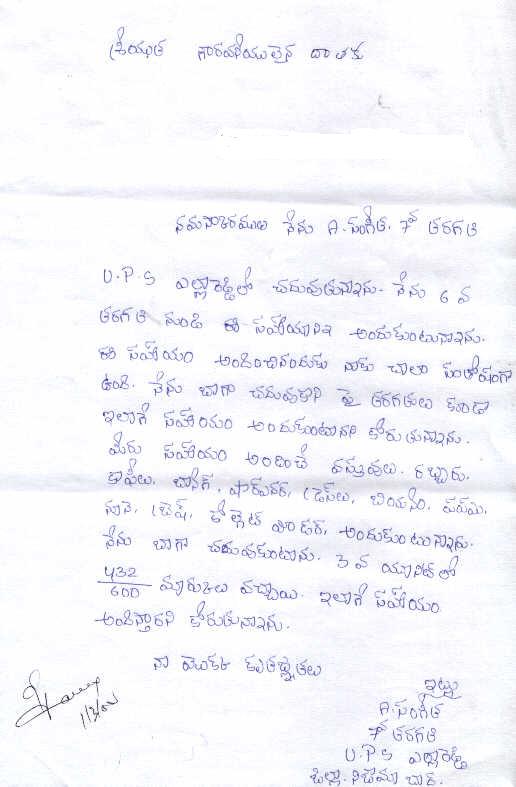 శ్రీయుత గౌరవనీయులైన దాతకు
నమస్కారములు నేను A. సంగీత. 7వ తరగతి
U.P.S ఎల్లారెడ్డిలో చదువుతున్నాను. నేను 6 వ
తరగతి నుండి ఈ సహాయాన్ని అందుకుంటున్నాను.
ఈ సహాయం అందించినందుకు నాకు చాలా సంతోషంగా
ఉంది. నేను బాగా చదువుకొని పై తరగతులు కూడా
ఇలాగే సహాయం అందుకుంటానని కోరుతున్నాను.
మీరు సహాయం అందించే వస్తువులు. రబ్బరు.
కాపీలు. బ్యాగ్, షార్పనర్, డ్రెస్‌లు, బియ్యం, పప్పు,
నూనె, బ్రెష్, కోల్గేట్ పౌడర్, అందుకుంటున్నాను.
నేను బాగా చదువుకుంటాను. 3 వ యూనిట్ లో
432/600 మార్కులు వచ్చాయి. ఇలాగే సహాయం
అందిస్తారని కోరుతున్నాను.
నా యొక్క కృతజ్ఞతలు
ఇట్లు
A. సంగీత
7వ తరగతి
U.P.S ఎల్లారెడ్డి
జిల్లా. నిజామాబాద.